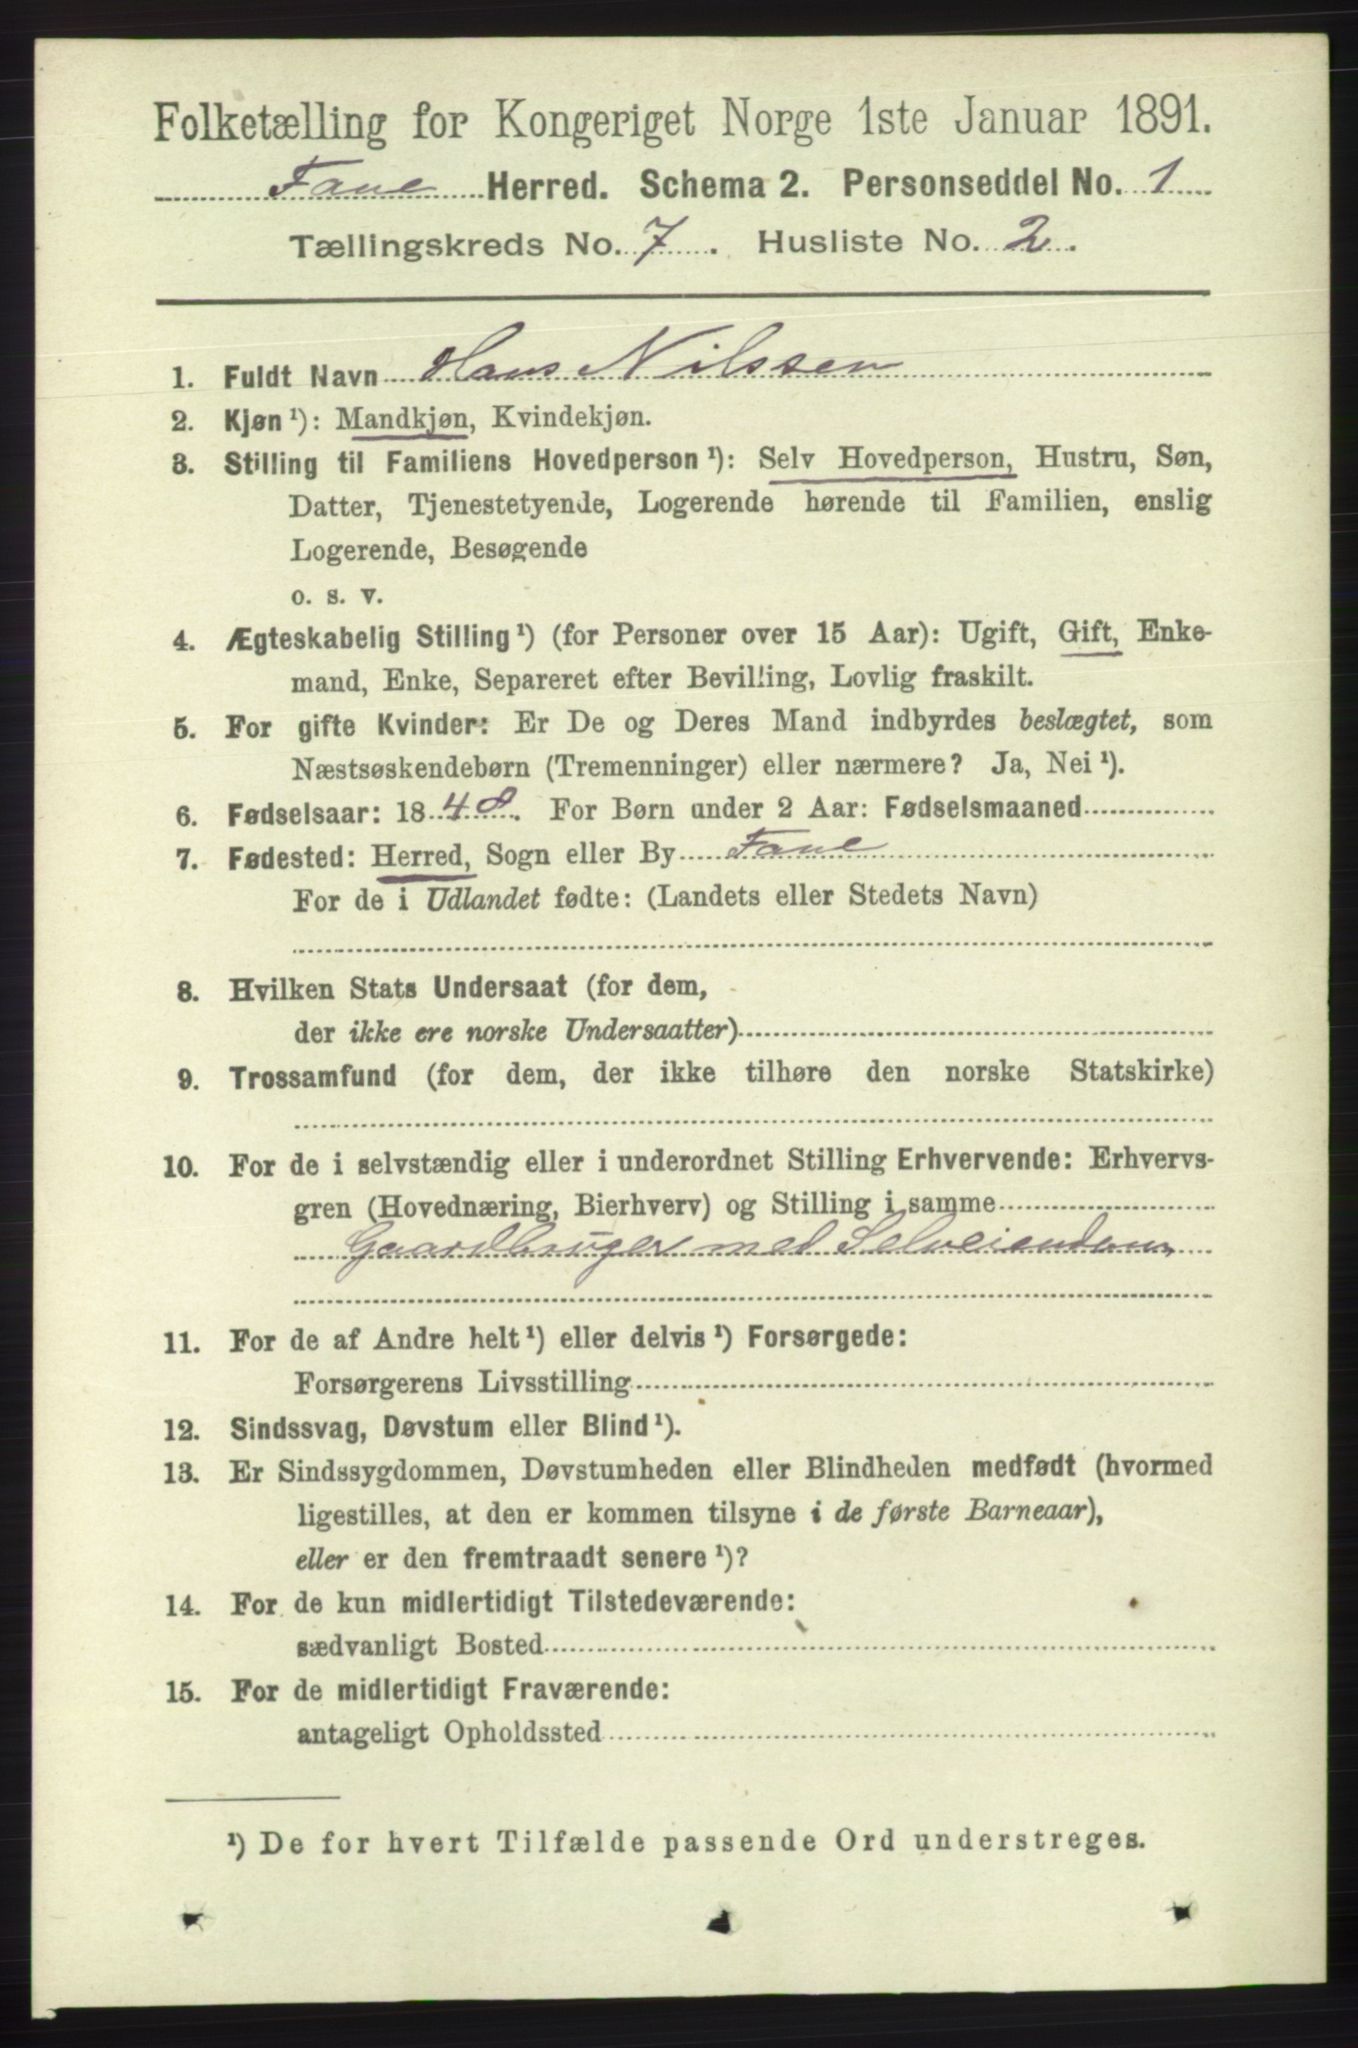 Folketælling for Kongeriget Norge 1ste Januar 1891.
Fane Herred. Schema 2. Personseddel No. 1
Tællingskreds No. 7. Husliste No. 2.
1. Fuldt Navn Hans Nilssen
2. Kjøn ¹): Mandkjøn, Kvindekjøn.
3. Stilling til Familiens Hovedperson ¹): Selv Hovedperson, Hustru, Søn,
Datter, Tjenestetyende, Logerende hørende til Familien, enslig
Logerende, Besøgende
o. s. v.
4. Ægteskabelig Stilling ¹) (for Personer over 15 Aar): Ugift, Gift, Enke-
mand, Enke, Separeret efter Bevilling, Lovlig fraskilt.
5. For gifte Kvinder: Er De og Deres Mand indbyrdes beslægtet, som
Næstsøskendebørn (Tremenninger) eller nærmere? Ja, Nei ¹).
6. Fødselsaar: 1848. For Børn under 2 Aar: Fødselsmaaned
7. Fødested: Herred, Sogn eller By Fane
For de i Udlandet fødte: (Landets eller Stedets Navn)
8. Hvilken Stats Undersaat (for dem,
der ikke ere norske Undersaatter)
9. Trossamfund (for dem, der ikke tilhøre den norske Statskirke)
10. For de i selvstændig eller i underordnet Stilling Erhvervende: Erhvervs-
gren (Hovednæring, Bierhverv) og Stilling i samme
Gaardbruger med Selveiendom
11. For de af Andre helt ¹) eller delvis ¹) Forsørgede:
Forsørgerens Livsstilling
12. Sindssvag, Døvstum eller Blind ¹).
13. Er Sindssygdommen, Døvstumheden eller Blindheden medfødt (hvormed
ligestilles, at den er kommen tilsyne i de første Barneaar),
eller er den fremtraadt senere ¹)?
14. For de kun midlertidigt Tilstedeværende:
sædvanligt Bosted
15. For de midlertidigt Fraværende:
antageligt Opholdssted
¹) De for hvert Tilfælde passende Ord understreges.